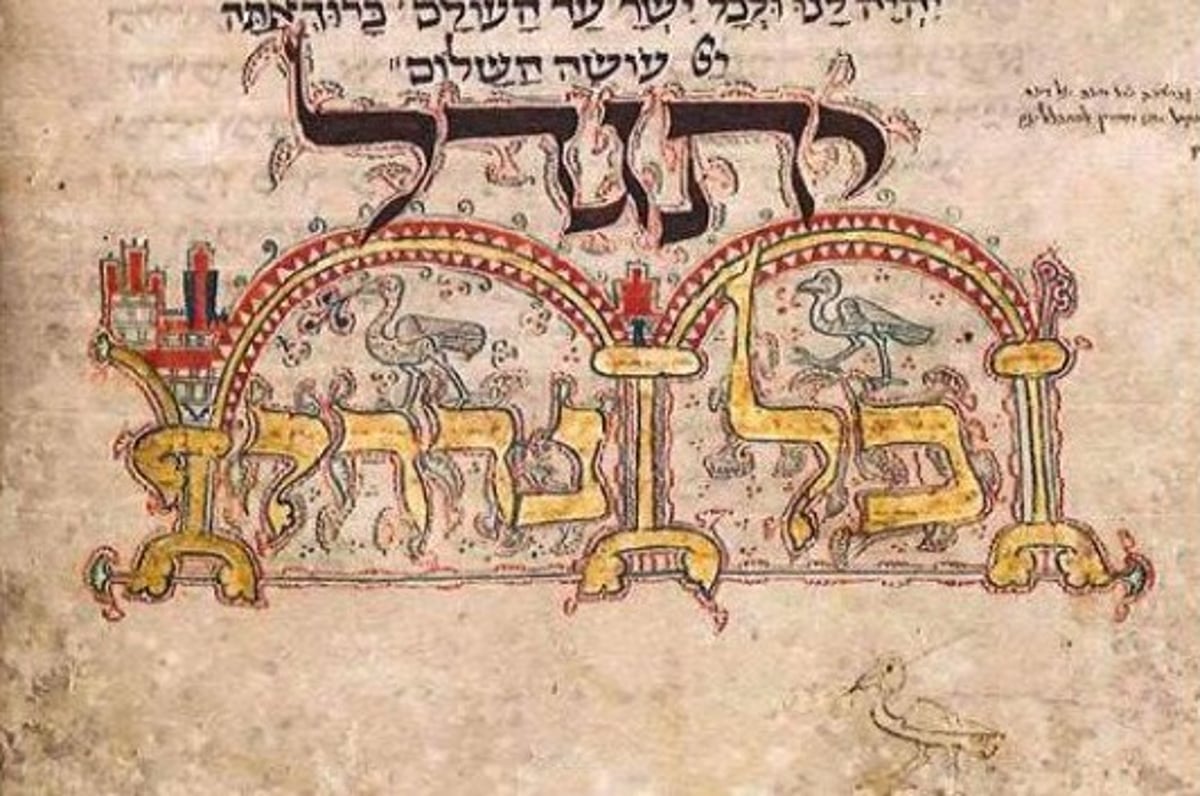 יִהְיֶה לָנוּ וּלְכָל יִשְׂרָ׳ עַד הָעוֹלָם׳ בָּרוּךְ אַתָּה
יי עוֹשֶׂה הַשָּׁלוֹם״
יתגדל
כל נדרי